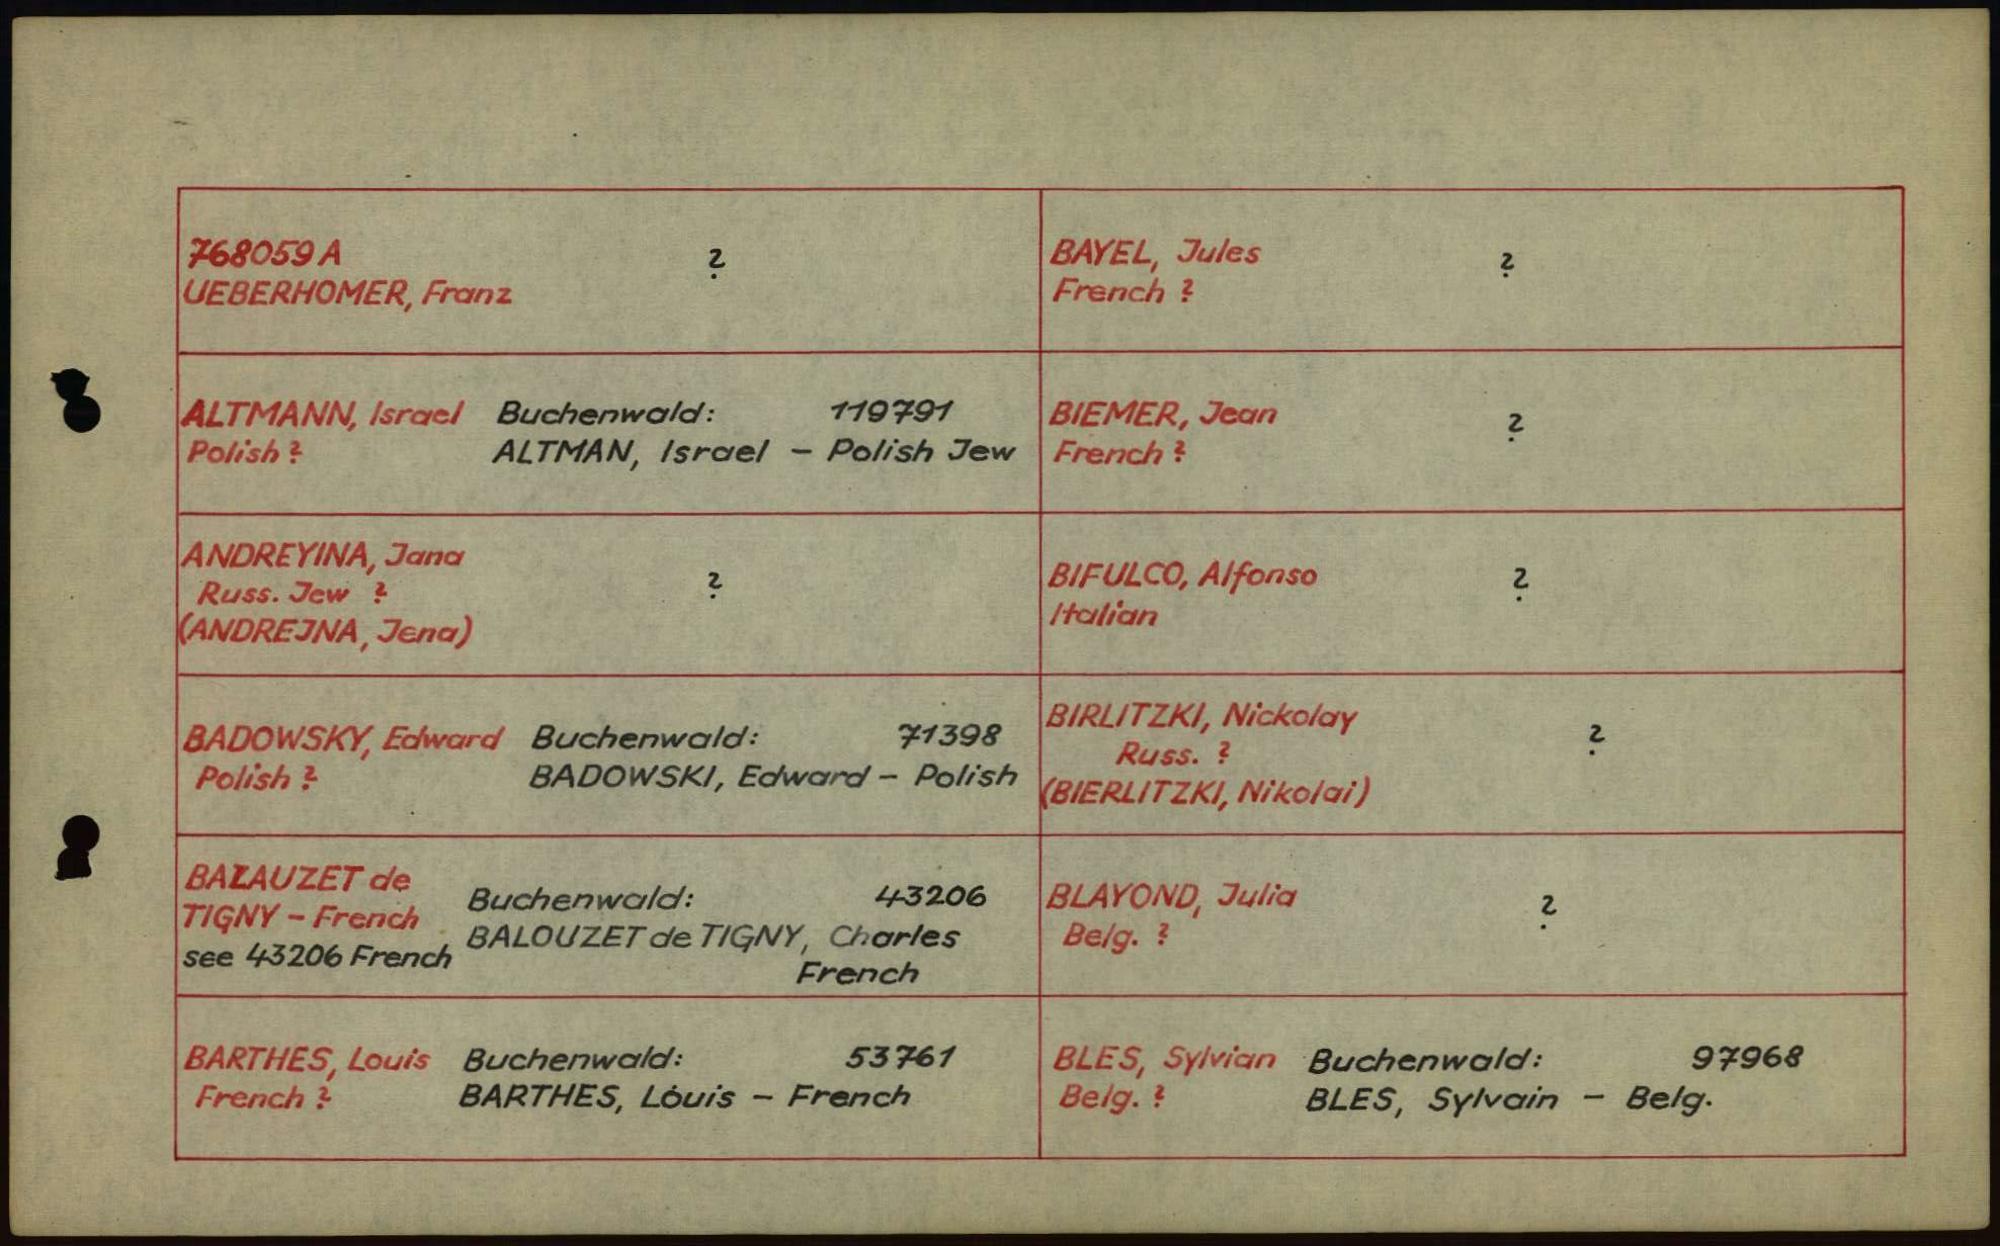 768059 A
UEBERHOMER, Franz
?
ALTMANN, Israel
Polish ?
Buchenwald: 119791
ALTMAN, Israel – Polish Jew
ANDREYINA, Jana
Russ. Jew ?
(ANDREJNA, Jena)
?
BADOWSKY, Edward
Polish ?
Buchenwald: 71398
BADOWSKI, Edward – Polish
BALAUZET de
TIGNY – French
see 43206 French
Buchenwald: 43206
BALOUZET de TIGNY, Charles
French
BARTHES, Louis
French ?
Buchenwald: 53761
BARTHES, Louis – French
BAYEL, Jules
French ?
?
BIEMER, Jean
French ?
?
BIFULCO, Alfonso
Italian
?
BIRLITZKI, Nickolay
Russ. ?
(BIERLITZKI, Nikolai)
?
BLAYOND, Julia
Belg. ?
?
BLES, Sylvian
Belg. ?
Buchenwald: 97968
BLES, Sylvain – Belg.